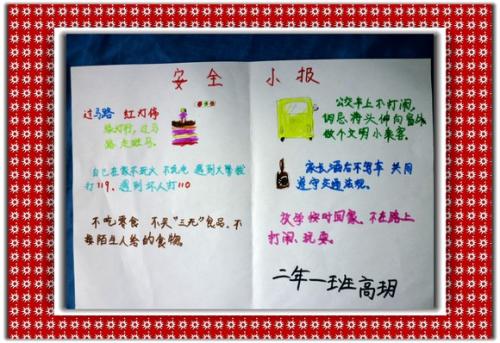 安全小报
过马路 红灯停
绿灯行，过马
路走斑马。
自己在家不玩火 不玩电 遇到火警拨
打119，遇到坏人打110
不吃零食 不买“三无”食品，不
要陌生人给的食物。
公交车上不打闹，
切忌将头伸向窗外
做个文明小乘客。
家长酒后不驾车 共同
遵守交通法规。
放学按时回家，不在路上
打闹、玩耍。
二年一班高玥